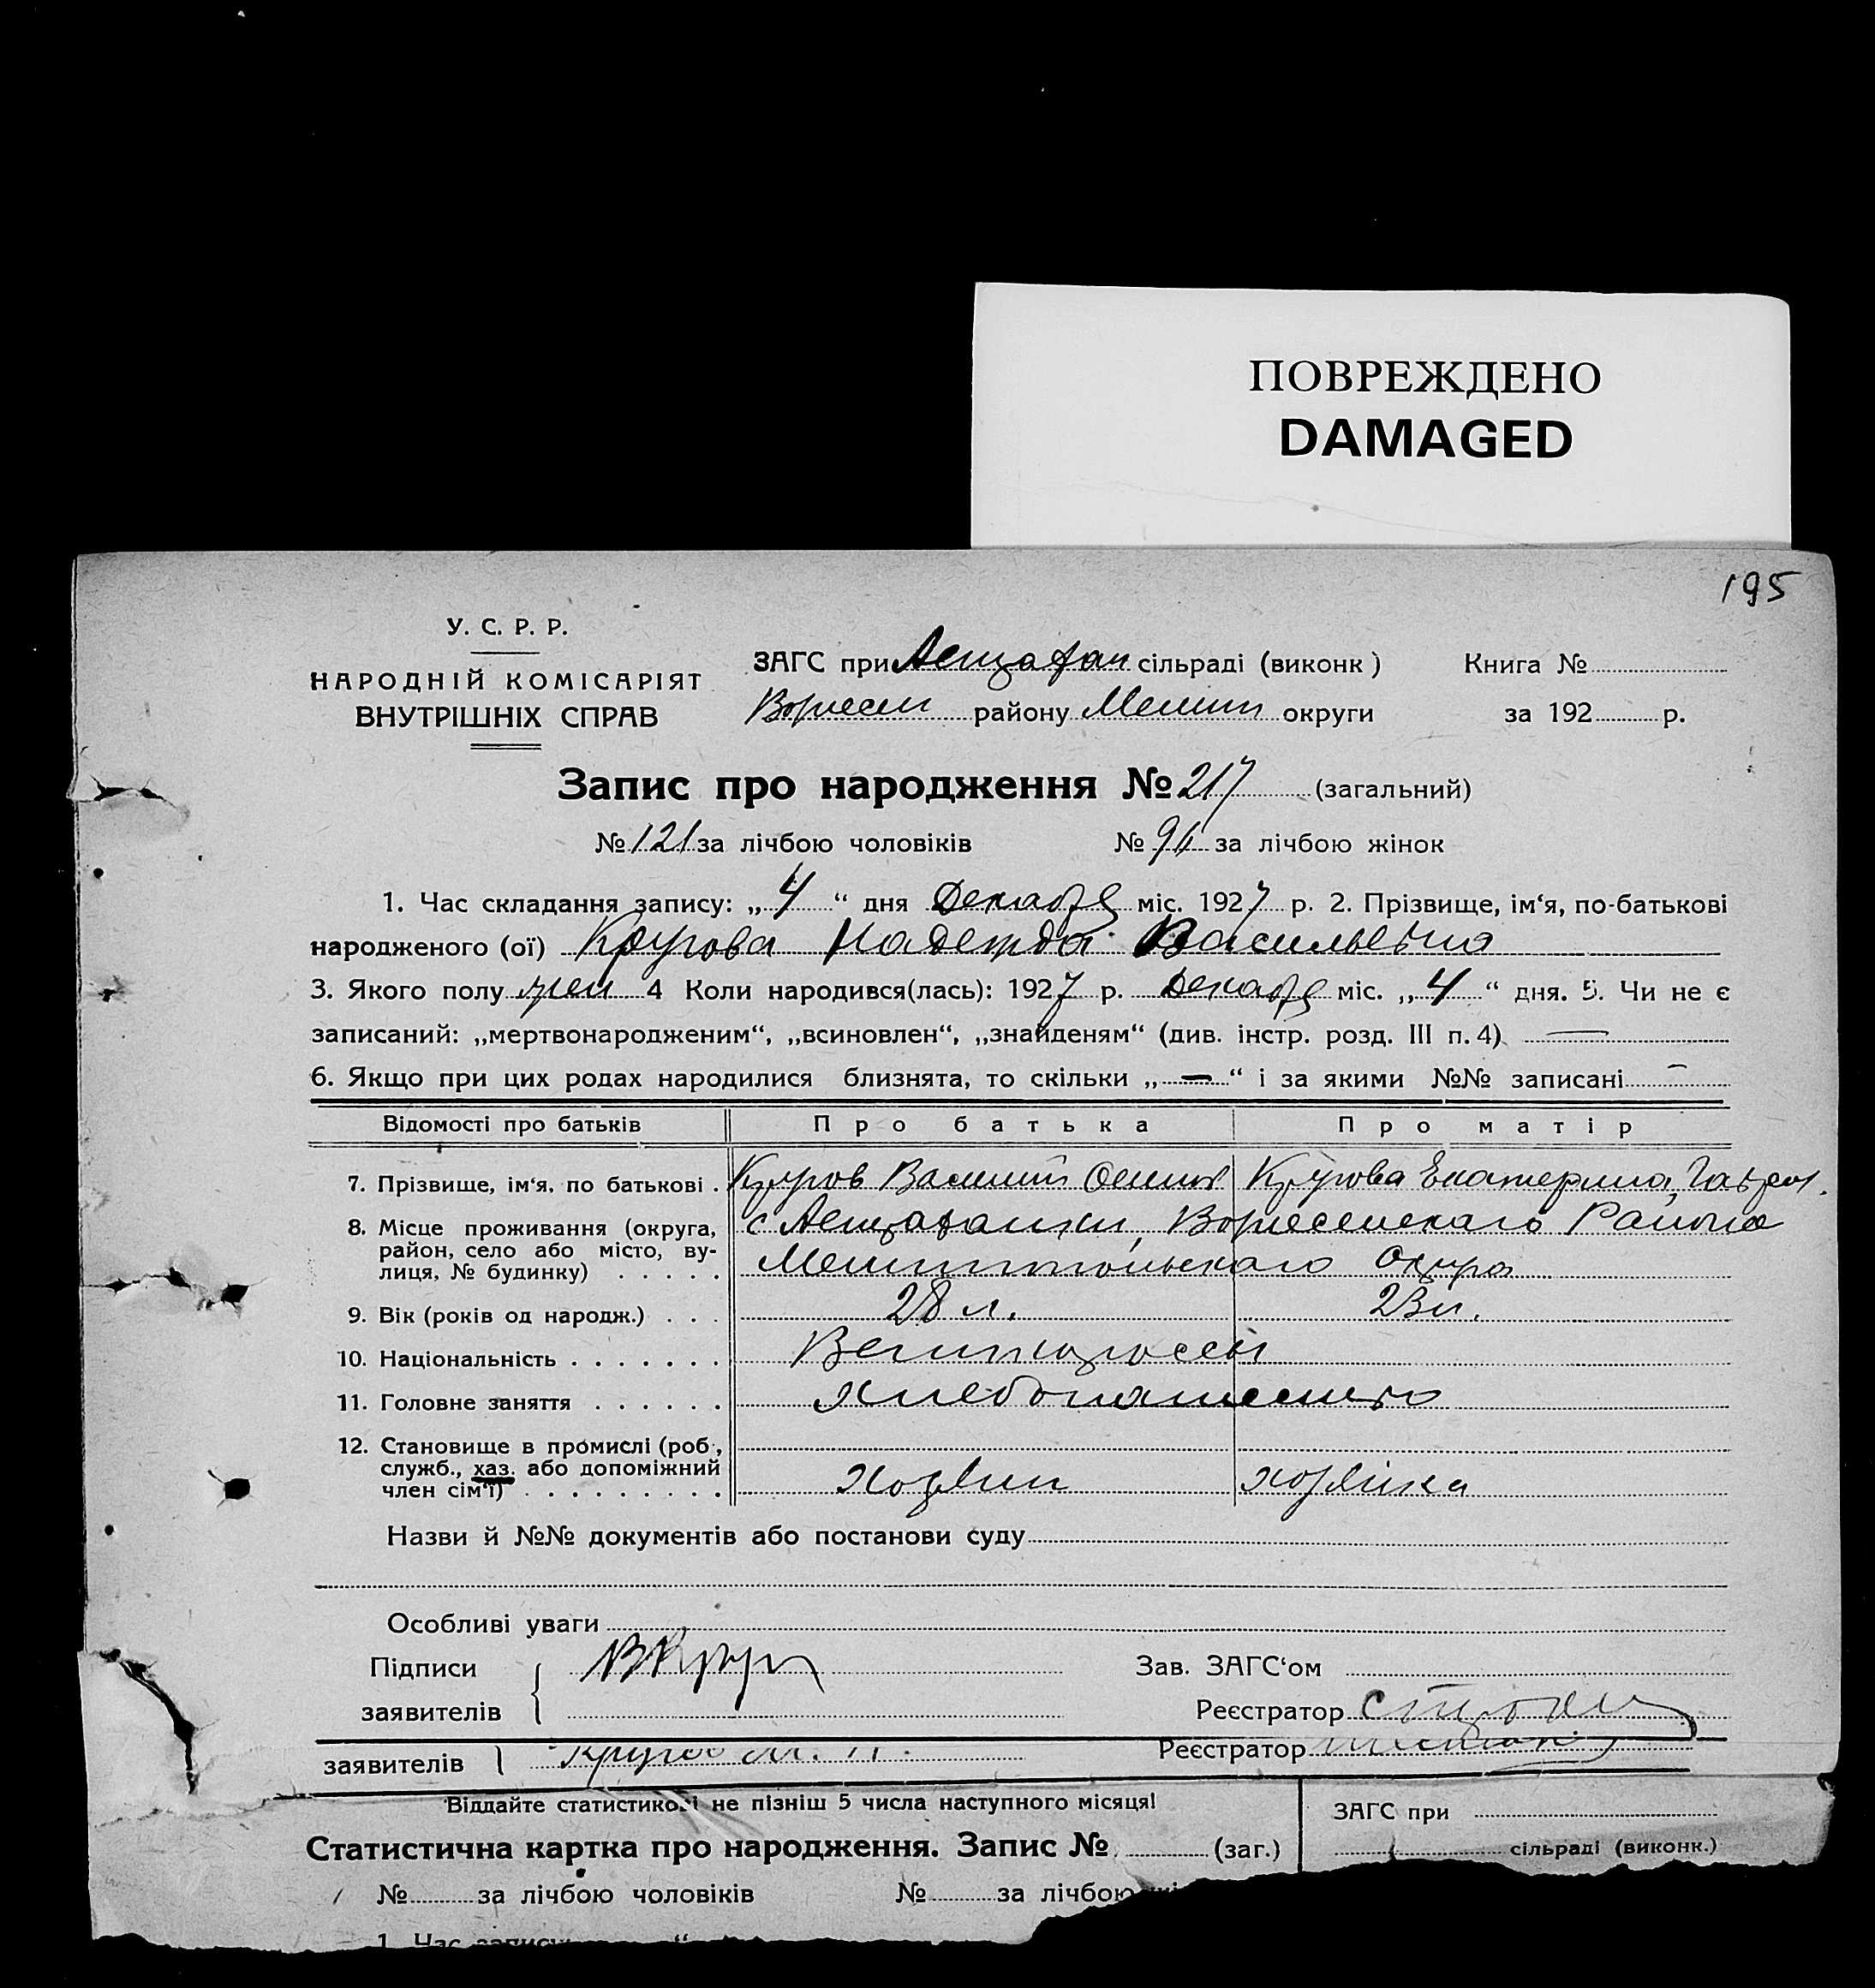 ПОВРЕЖДЕНО
DAMAGED
195
У. С. Р. Р.
НАРОДНІЙ КОМІСАРІЯТ
ВНУТРІШНІХ СПРАВ
ЗАГС при сільраді (виконк)
району округи
Книга №
за 192 р.
Запис про народження № 217 (загальний)
№ 121 за лічбою чоловіків № за лічбою жінок
1. Час складання запису: „ 4 “ дня Декабря міс. 1927 р. 2. Прізвище, ім‘я, по-батькові
народженого (ої) Кругова Надежда Васильевна
3. Якого полу жен 4 Коли народився(лась): 1927 р. Декабря міс. „ 4 “ дня. 5. Чи не є
записаний: „мертвонародженим“, „всиновлен“, „знайденям“ (див. інстр. розд. III п. 4) —
6. Якщо при цих родах народилися близнята, то скільки „ — “ і за якими №№ записані —
Відомості про батьків Про батька Про матір
7. Прізвище, ім‘я, по батькові . Кругов Василий Кругова Екатерина
8. Місце проживання (округа,
район, село або місто, ву-
лиця, № будинку) . . . . .
с Вознесенскаго Района
Мелитопольскаго Округа
9. Вік (років од народж.) . . . 28 л. 23 л.
10. Національність . . . . . . . Великороссы
11. Головне заняття . . . . . . Хлебопашество
12. Становище в промислі (роб.,
служб., хаз. або допоміжний
член сім‘ї) . . . . . . . . . Хозяин хозяйка
Назви й №№ документів або постанови суду
Особливі уваги
Підписи
заявителів
Зав. ЗАГС‘ом
Реєстратор
заявителів Реєстратор
Віддайте статистикові не пізніш 5 числа наступного місяця!
Статистична картка про народження. Запис № (заг.)
ЗАГС при
сільраді (виконк.)
№ за лічбою чоловіків № за лічбою
1. Час запису